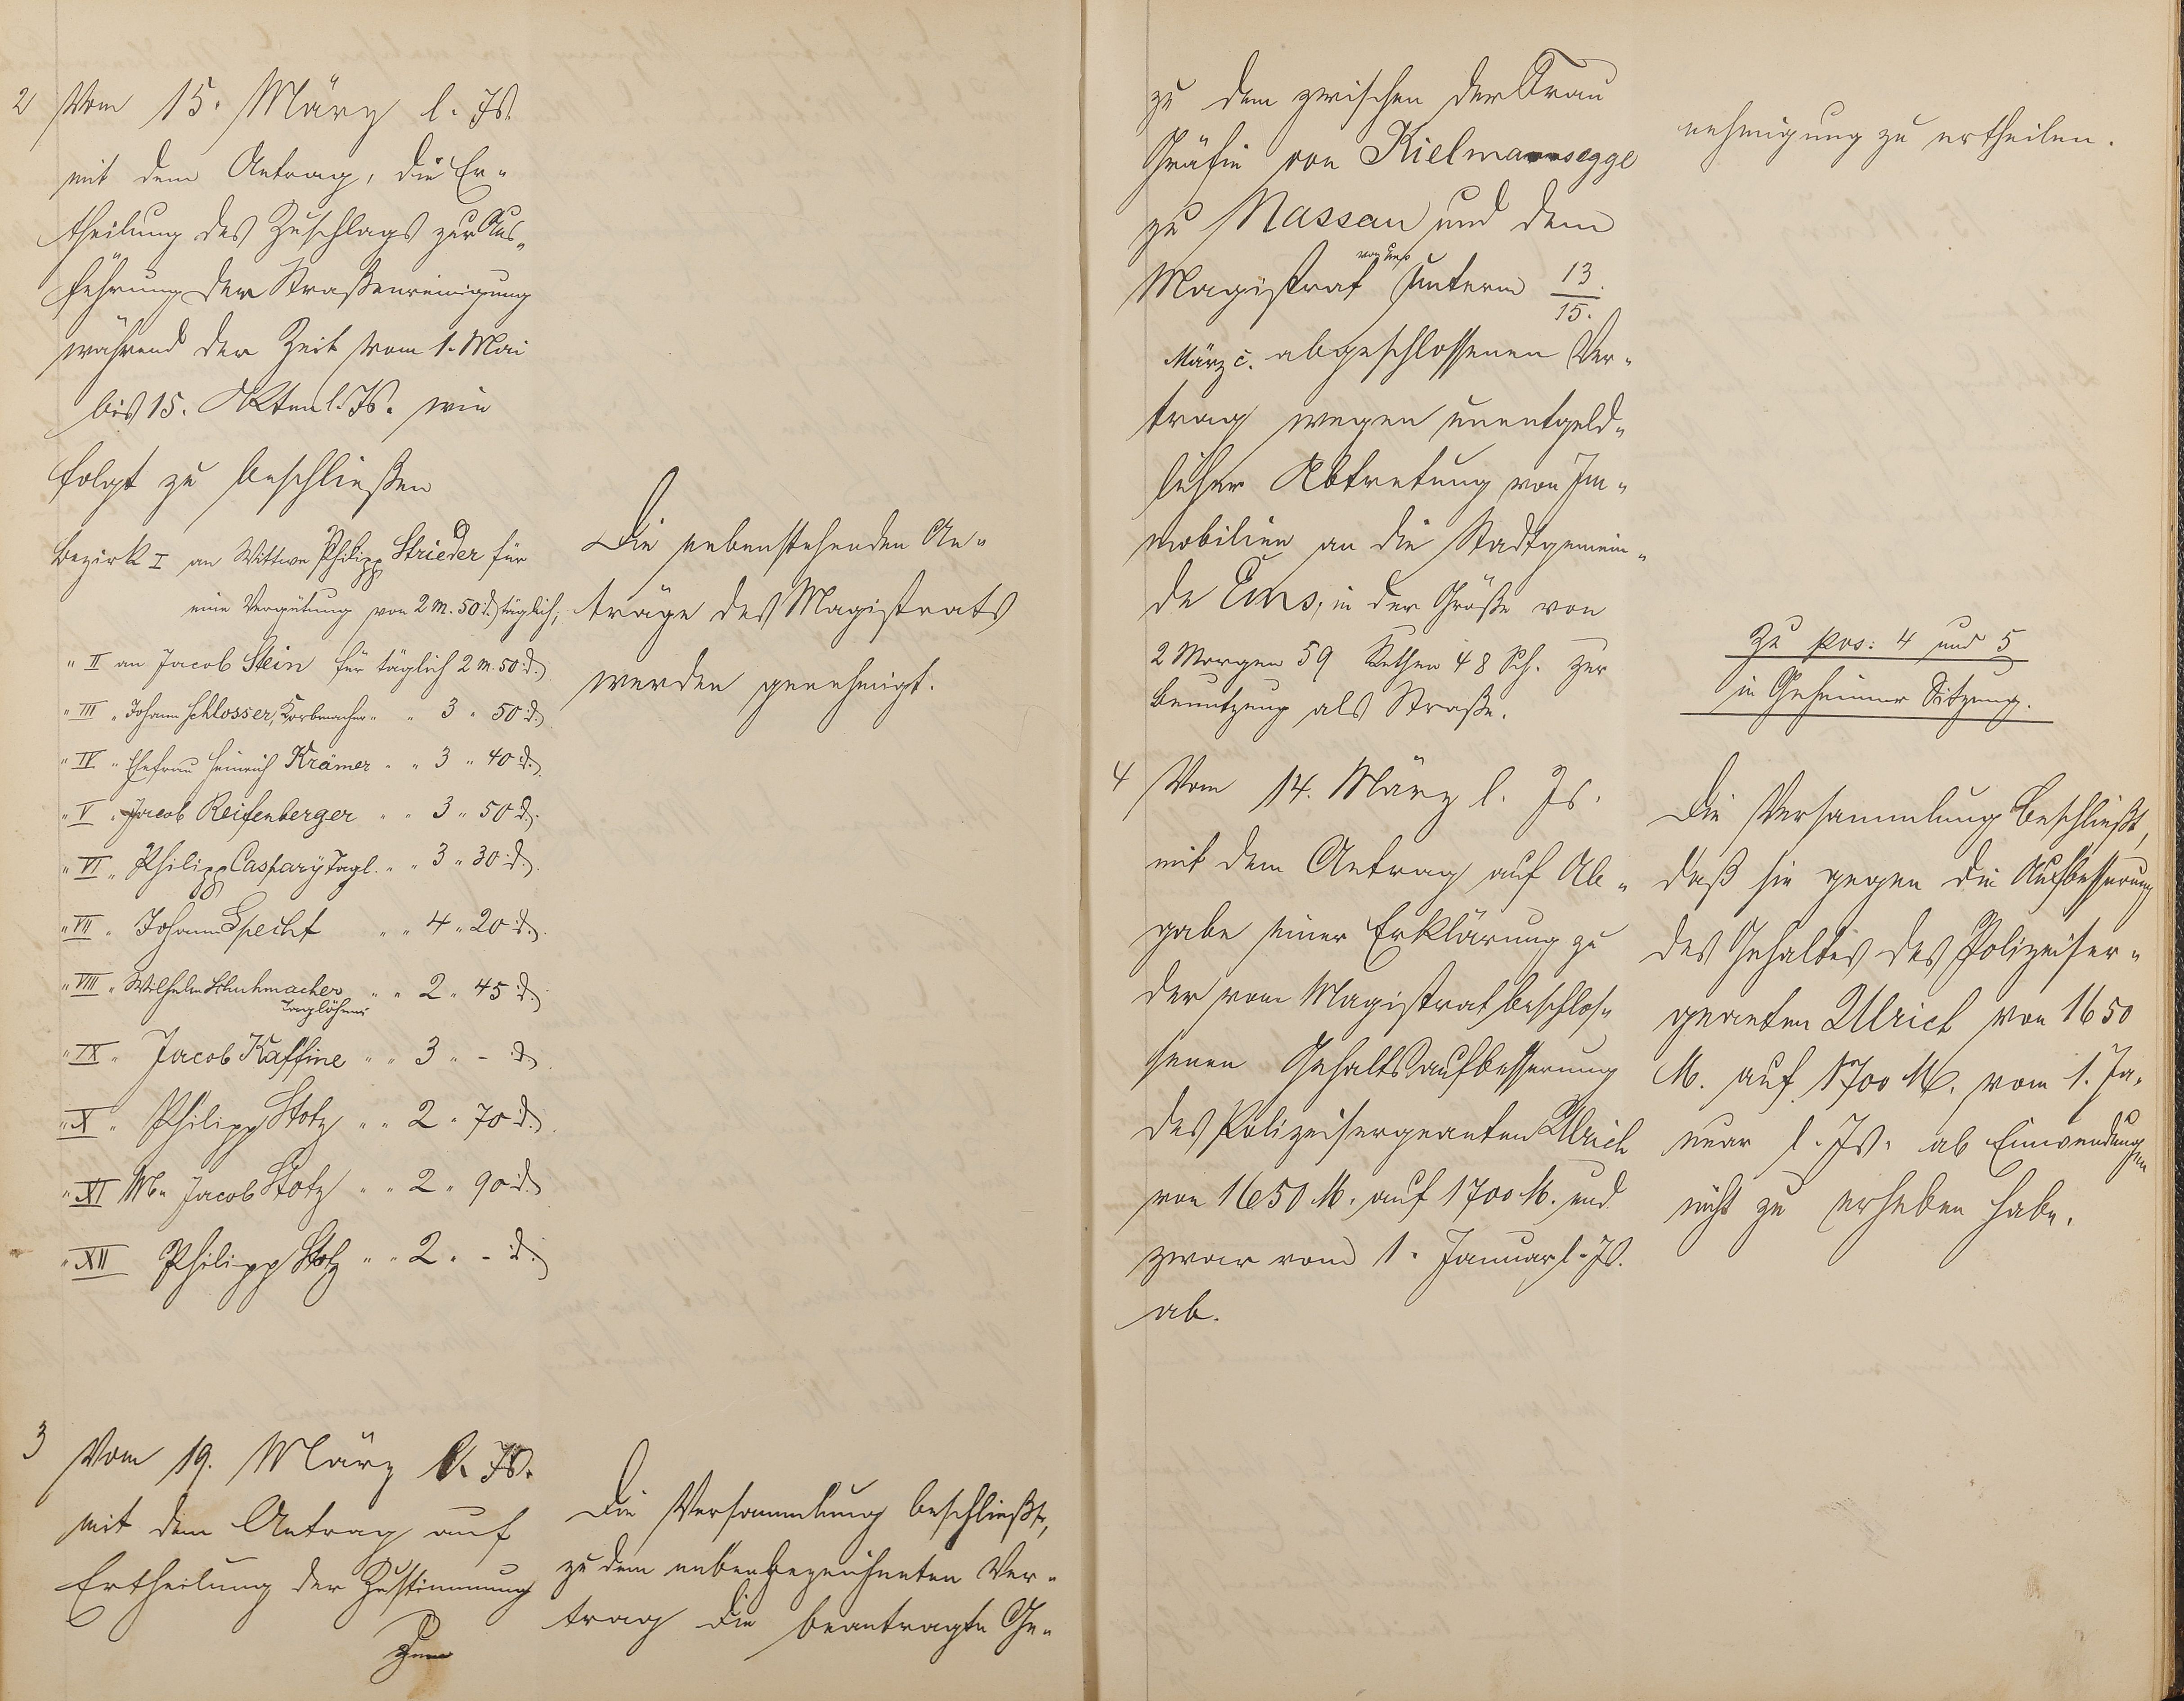 2 Vom 15. März l. Js.
mit dem Antrag, die Er-
theilung des Zuschlags zur Aus-
führung der Straßenreinigung
während der Zeit vom 1. Mai
bis 15. Oktbr. l. Js. wie
folgt zu beschließen
Bezirk I an Wittwe Philipp Strieder für
eine Vergütung von 2 M. 50 d. täglich,
" II an Jacob Stein für täglich 2 M. 50 d.
" III " Johann Schlosser, Korbmacher " " 3 " 50 d.
" IV " Ehefrau Heinrich Krämer " " 3 " 40 d.
" V " Jacob Reifenberger " " 3 " 50 d.
" VI " Philipp Caspary Tagl. " " 3 " 30 d.
" VII " Johann Specht " " 4 " 20 d.
" VIII " Wilhelm Schuhmacher " " 2 " 45 d.
Taglöhner
" IX " Jacob Kaffine " " 3 " - d.
" X " Philipp Stotz " " 2 " 70 d.
" XI Jacob Stotz " " 2 " 90 d.
" XII Philipp Stotz " " 2 " - d.
Die nebenstehenden An-
träge des Magistrats
werden genehmigt.
3 Vom 19. März l. Js.
mit dem Antrag auf
Ertheilung der Zustimmung
Die Versammlung beschließt,
zu dem nebenbezeichneten Ver-
trag die beantragte Ge-
zu dem zwischen der Frau
Gräfin von Kielmannsegge
zu Nassau und dem
Magistrat von Ems unterm 13./15.
März c. abgeschlossenen Ver-
trag wegen unentgeld-
licher Abtretung von Im-
mobilien an die Stadtgemein-
de Ems, in der Größe von
2 Morgen 59 Ruthen 48 Sch. zur
Benutzung als Straße.
nehmigung zu ertheilen.
Zu pos: 4 und 5
in Geheimer Sitzung.
4 Vom 14. März l. Js.
mit dem Antrag auf Ab-
gabe einer Erklärung zu
der vom Magistrat beschlos-
senen Gehaltsaufbesserung
des Polizeisergeanten Ulrich
von 1650 M. auf 1700 M. und
zwar vom 1. Januar l. Js.
ab.
Die Versammlung beschließt,
daß sie gegen die Aufbesserung
des Gehaltes des Polizeiser-
geanten Ulrich von 1650
M. auf 1700 M. vom 1. Ja-
nuar l. Js. ab Einwendungen
nicht zu erheben habe.